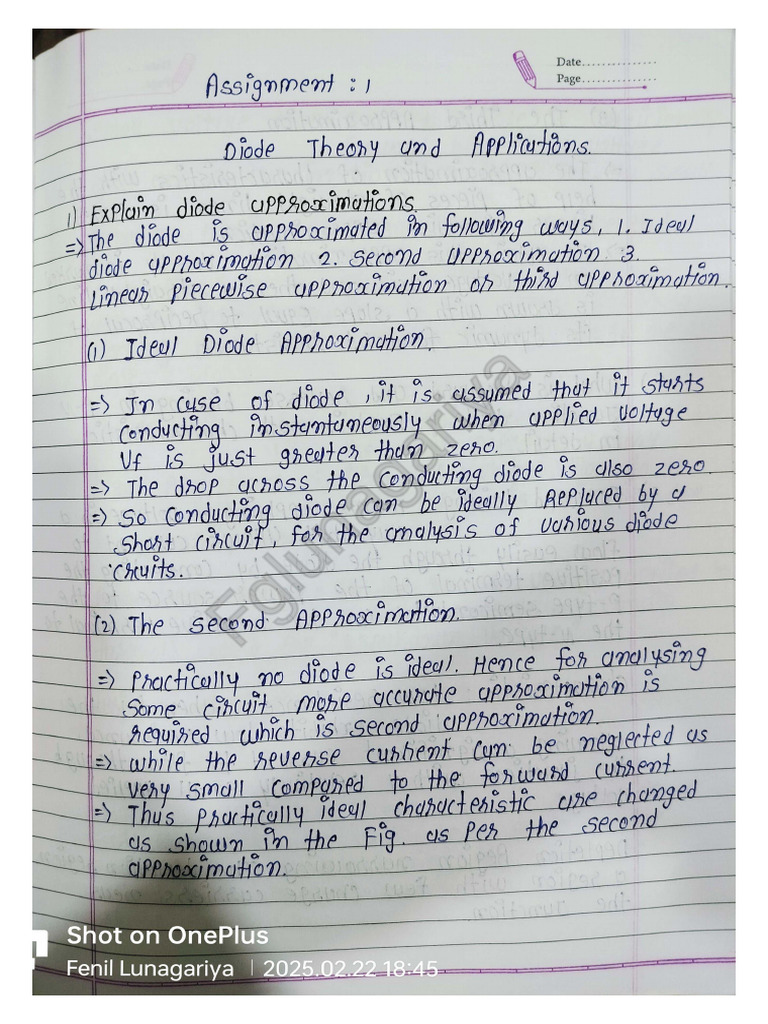 Date...............
Page...............
Assignment : 1
Diode Theory and Applications.
1) Explain diode approximations.
=> The diode is approximated in following ways, 1. Ideal
diode approximation 2. Second Upproximation 3.
Linear Piecewise approximation or third approximation.
(1) Ideal Diode Approximation.
=> In case of diode, it is assumed that it starts
conducting instantaneously when applied voltage
Vf is just greater than zero.
=> The drop across the conducting diode is also zero.
=> So conducting diode can be ideally Replaced by a
short circuit, for the analysis of various diode
crcuits.
(2) The second Approximation.
=> Practically no diode is ideal. Hence for analysing
Some circuit more accurate approximation is
required which is second approximation.
=> while the reverse current can be neglected as
very small compared to the forward current.
=> Thus practically ideal characteristic are changed
as shown in the Fig. as Per the second
approximation.
Fglunagariya
Shot on OnePlus
Fenil Lunagariya | 2025.02.22 18:45